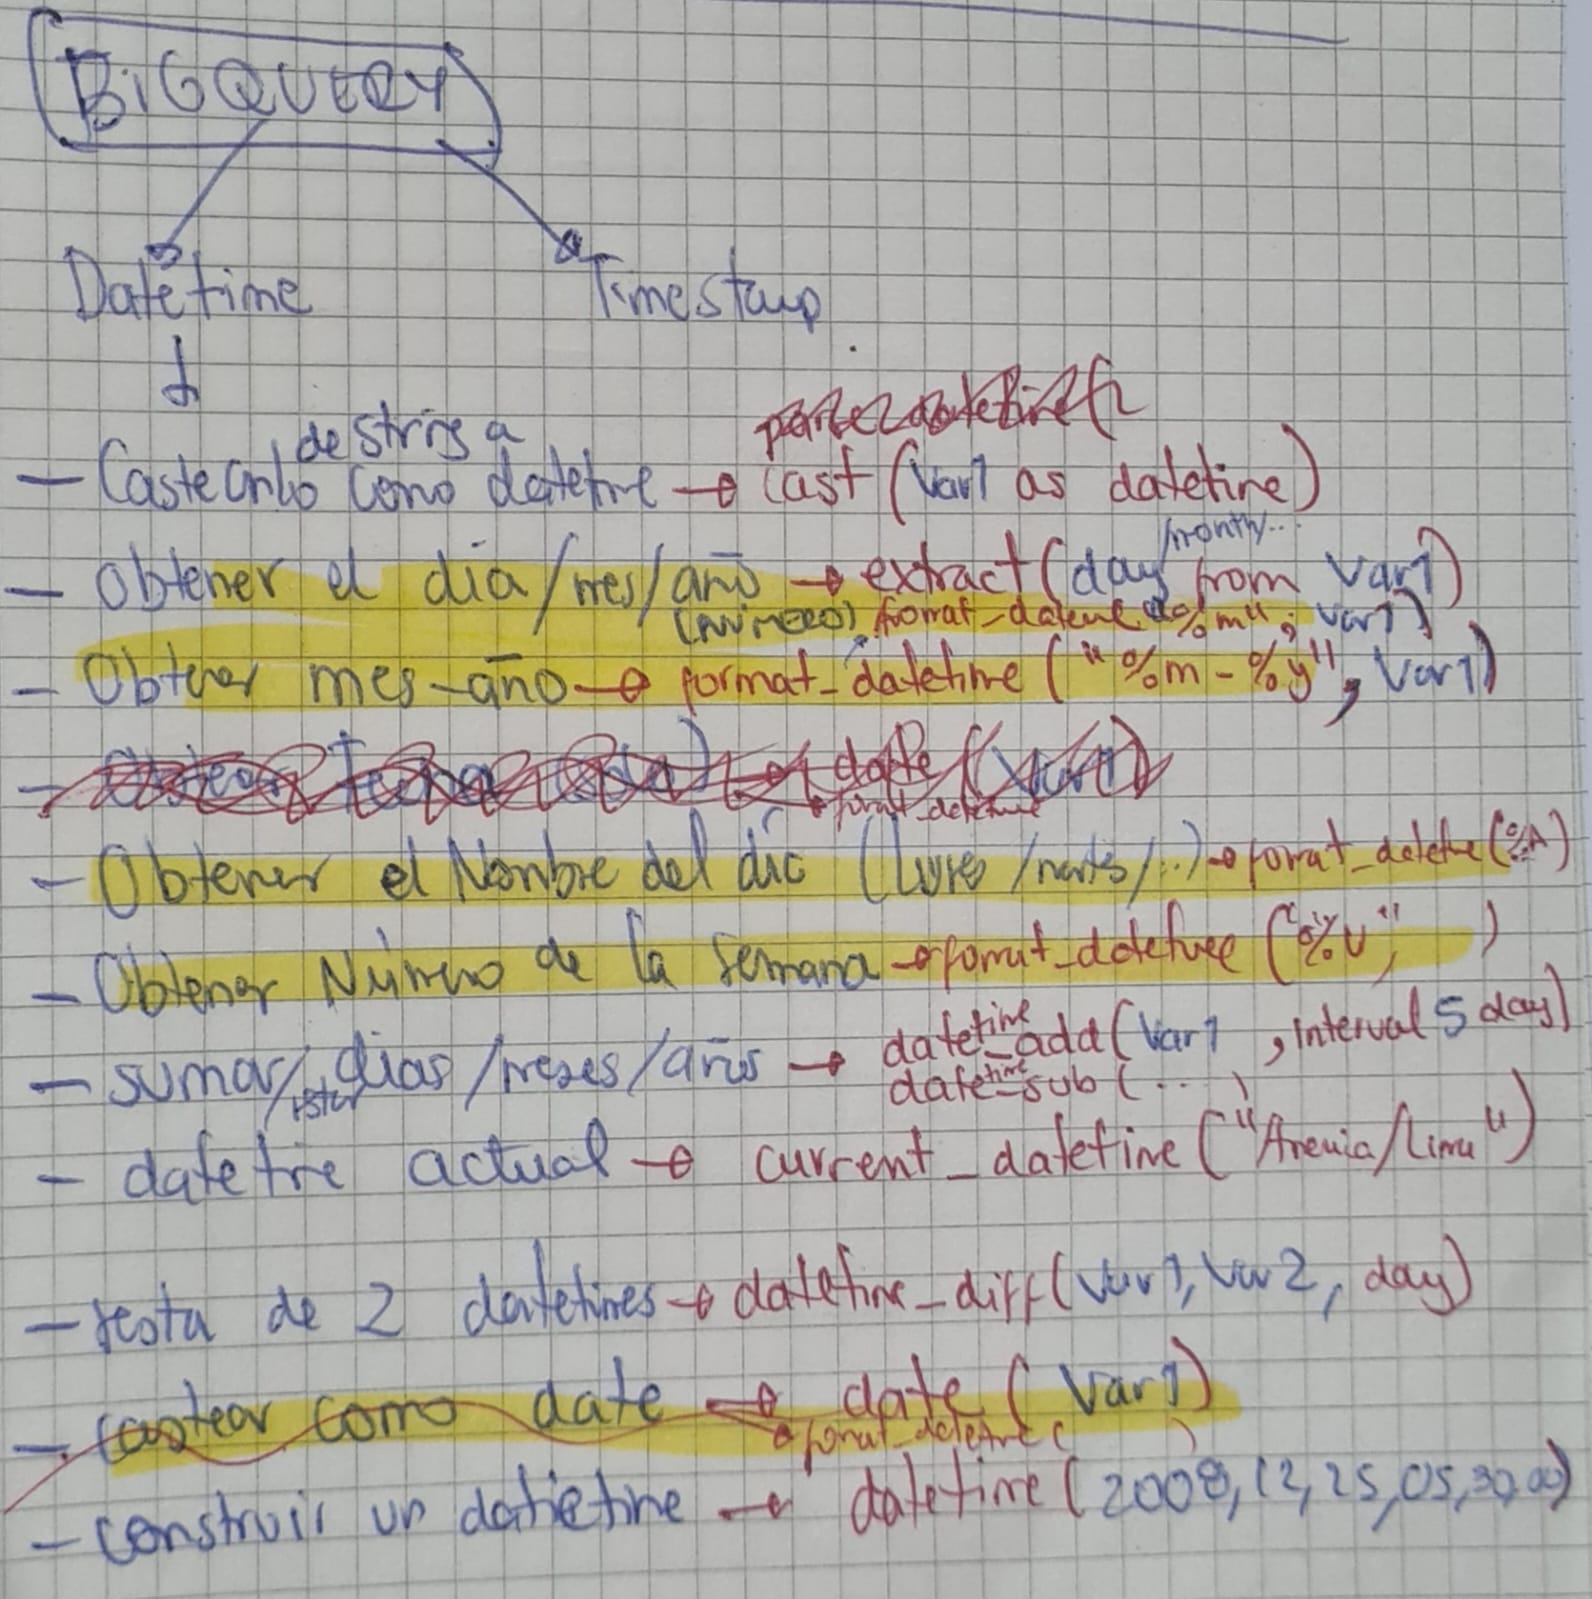 BiGQUERY
Datetime Timestamp
de string a
- Castearlo como datetime → cast (Var1 as datetime)
/month...
- Obtener el día/mes/año → extract (day from Var1)
(NÚMERO) format_datetime("%m", var1)
- Obtener mes-año → format_datetime ("%m-%y", Var1)
date (Var1)
format_datetime
- Obtener el Nombre del día (lunes/martes/..) → format_datetime (%A)
- Obtener Número de la semana → format_datetime ("%V", )
- sumar/restar días/meses/años → datetime_add (Var1, interval 5 day)
datetime_sub (...)
- datetime actual → current_datetime ("America/Lima")
- resta de 2 datetimes → datetime_diff (Var1, Var2, day)
- castear como date → date (Var1)
format_datetime ( )
- construir un datietime → datetime (2008, 12, 25, 05, 30, 00)